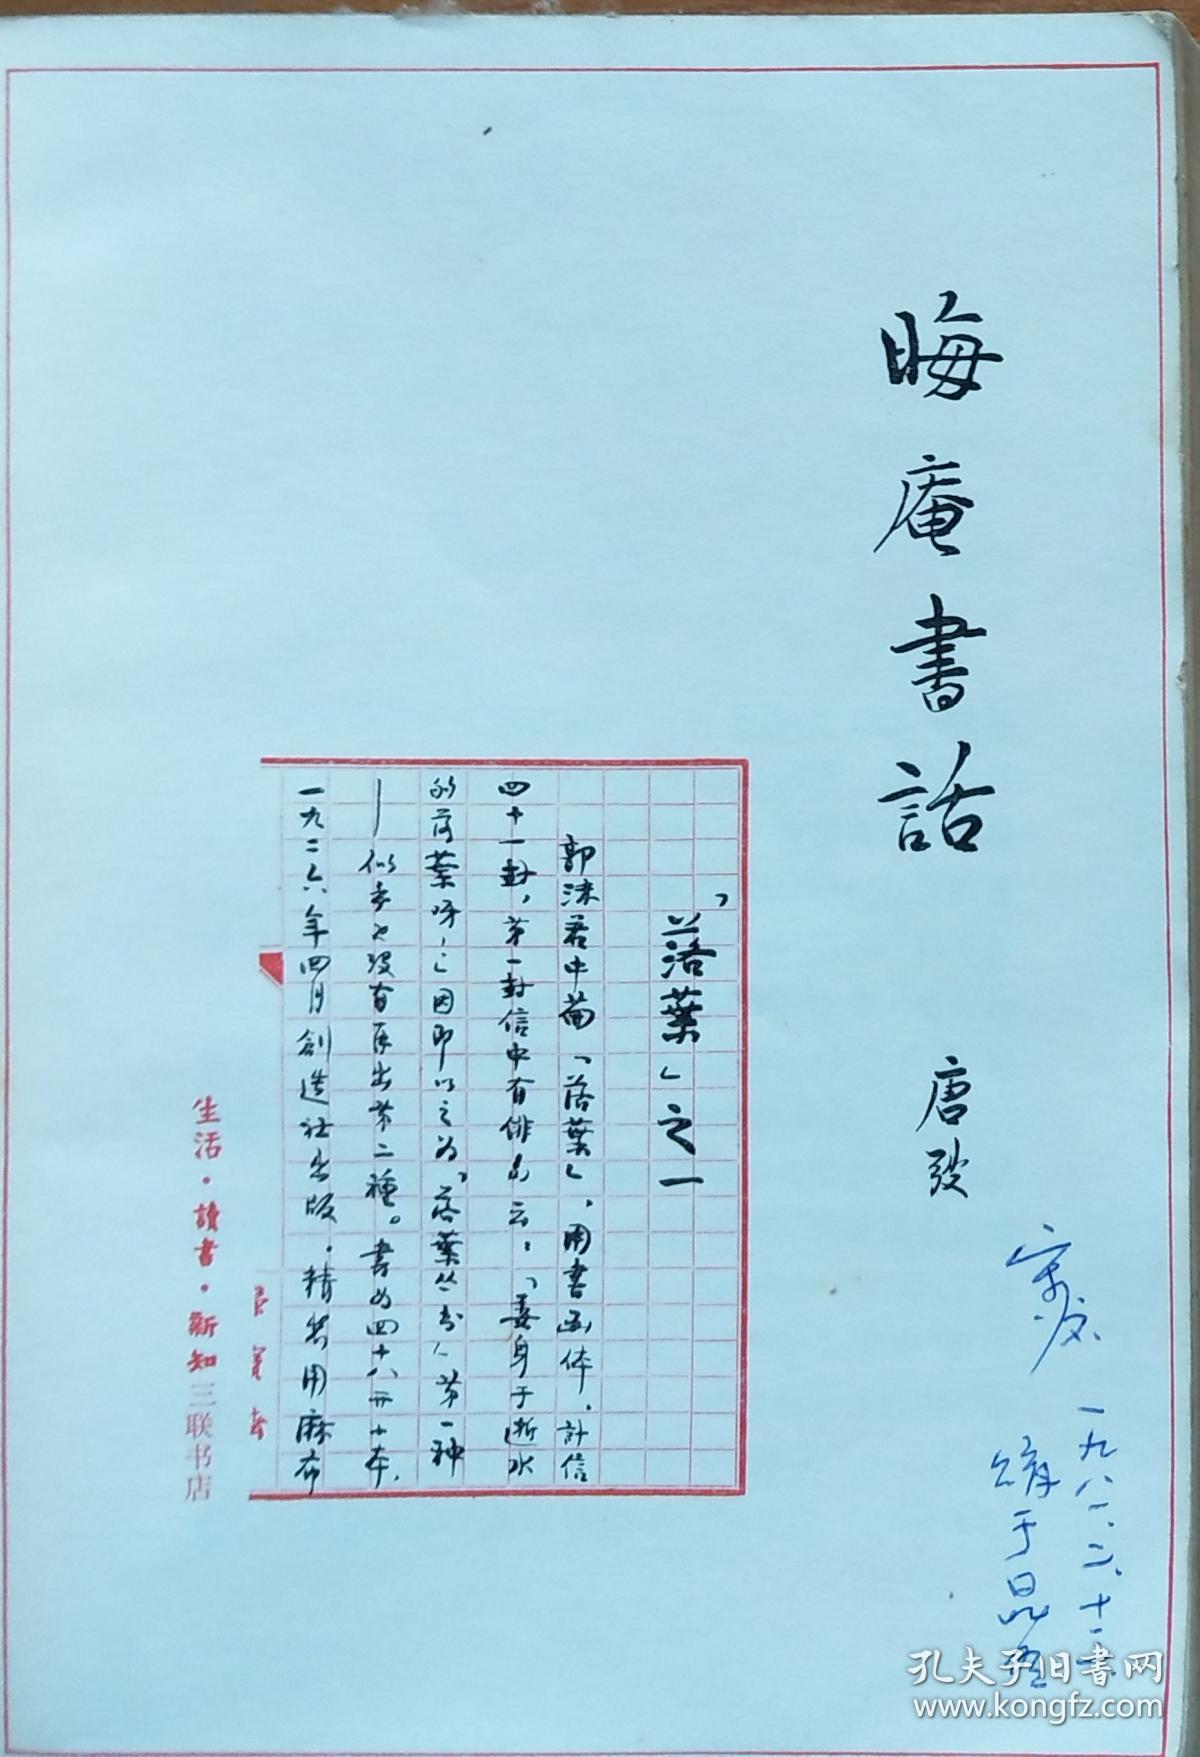 晦庵書話
唐弢
一九八一.二.十二.
購于昆明
「落葉」之一
郭沫若中篇「落葉」，用書函体，計信
四十一封，第一封信中有俳句云：「委身于逝水
的落葉呀！」因即以之为「落葉丛书」第一种
—似乎也没有再出第二種。書为四十八开小本，
一九二六年四月創造社出版，精裝用麻布
生活·讀書·新知三联书店
孔夫子旧書网
www.kongfz.com